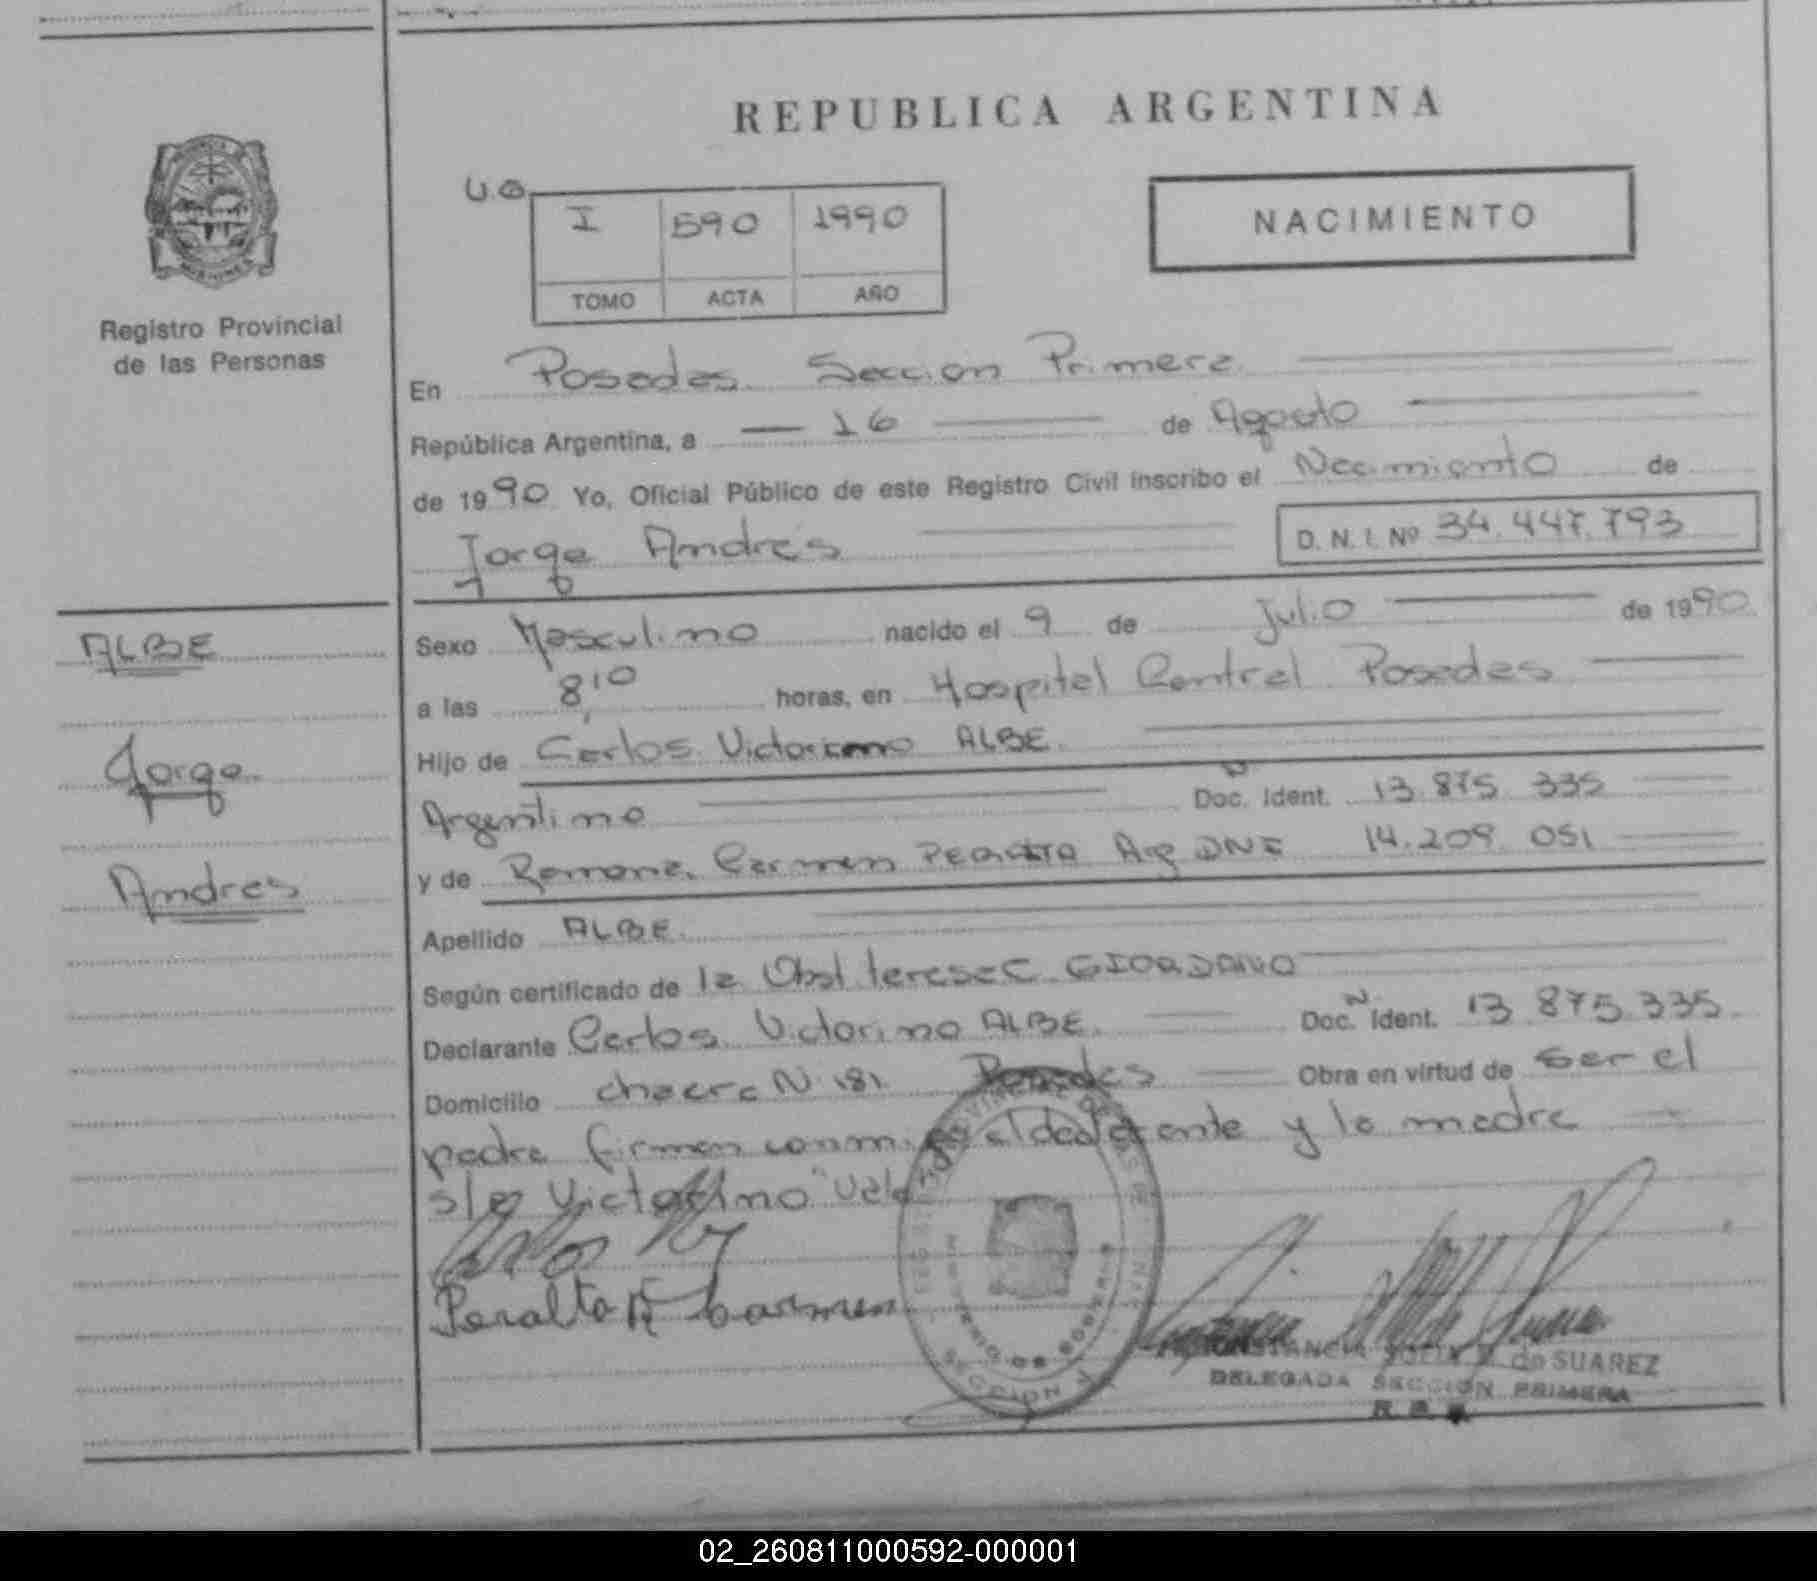 REPUBLICA ARGENTINA
U.G
I 590 1990
TOMO ACTA AÑO
NACIMIENTO
Registro Provincial
de las Personas
En Posadas Seccion Primera
República Argentina, a 16 de Agosto
de 1990 Yo, Oficial Público de este Registro Civil inscribo el Nacimiento de
Jorge Andres D. N. I. Nº 34.447.793
ALBE
Jorge
Andres
Sexo Masculino nacido el 9 de Julio de 1990
a las 8,10 horas, en Hospital Central Posadas
Hijo de Carlos Victorino ALBE
Argentino Doc. Ident. 13.875 335
y de Ramona Carmen PERALTA Arg DNI 14.209 051
Apellido ALBE
Según certificado de la Obst teresa C GIORDANO
Declarante Carlos Victorino ALBE Doc. Ident. 13 875.335
Domicilio chacra N 181 Posadas Obra en virtud de ser el
padre firman conmigo el declarante y la madre
s/r Victorino Vale
Peralta R Carmen
MINISTERIO DE GOBIERNO
SECCION
CONSTANCIA de SUAREZ
DELEGADA SECCION PRIMERA
02_260811000592-000001